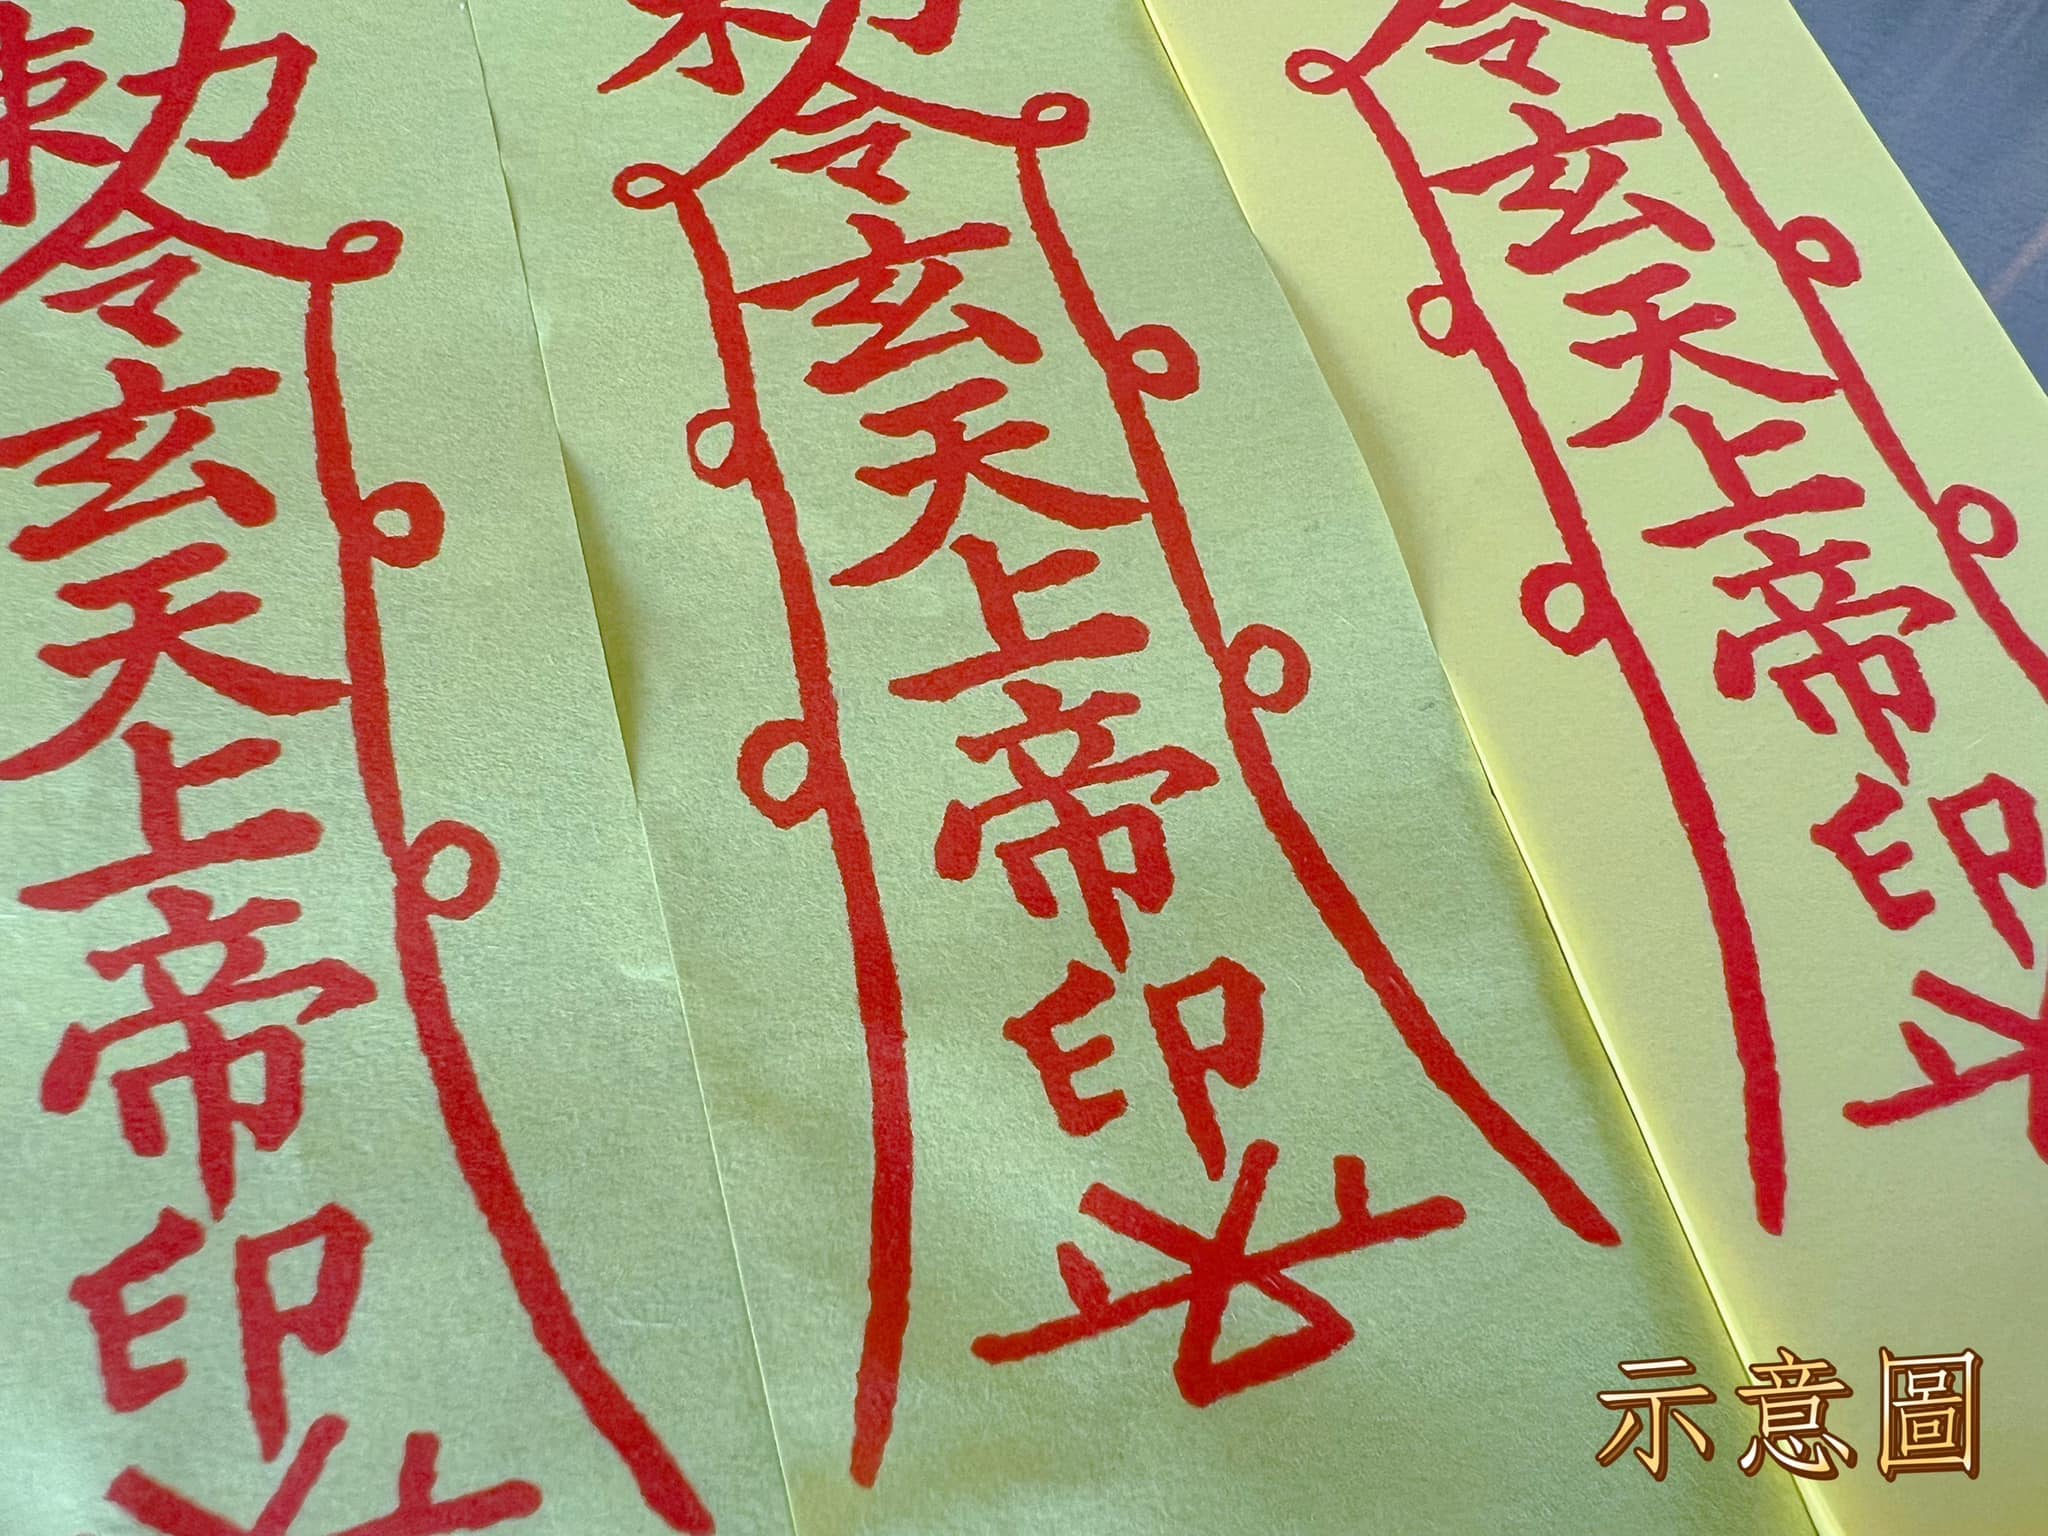 勅令玄天上帝印
勅令玄天上帝印
令玄天上帝印
示意圖